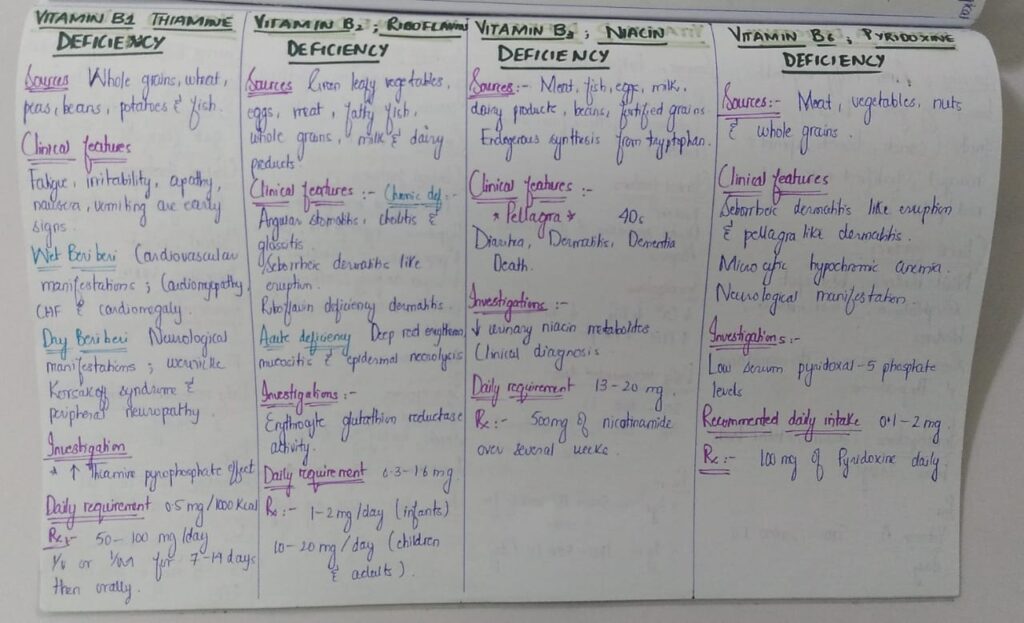 VITAMIN B1 THIAMINE
DEFICIENCY
Sources Whole grains, wheat,
peas, beans, potatoes & fish.
Clinical features
Fatigue, irritability, apathy,
nausea, vomiting are early
signs.
Wet Beri beri Cardiovascular
manifestations; Cardiomyopathy,
CHF & cardiomegaly.
Dry Beri beri Neurological
manifestations; wernicke
Korsakoff syndrome &
peripheral neuropathy.
Investigation
* ↑ Thiamine pyrophosphate effect
Daily requirement 0.5 mg/1000 Kcal
Rx:- 50-100 mg/day
I/V or I/M for 7-14 days
then orally.
VITAMIN B2; RIBOFLAVIN
DEFICIENCY
Sources Green leafy vegetables,
eggs, meat, fatty fish,
whole grains, milk & dairy
products.
Clinical features :- Chronic def:-
Angular stomatitis, cheilitis &
glossitis.
Seborrheic dermatitis like
eruption.
Riboflavin deficiency dermatitis.
Acute deficiency Deep red erythema,
mucocitis & epidermal necrolysis
Investigations :-
Erythrocyte glutathion reductase
activity.
Daily requirement 0.3-1.6 mg
Rx:- 1-2 mg/day (infants)
10-20 mg/day (children
& adults).
VITAMIN B3; NIACIN
DEFICIENCY
Sources:- Meat, fish, eggs, milk,
dairy products, beans, fortified grains.
Endogenous synthesis from tryptophan.
Clinical features :-
* Pellagra * 4Ds
Diarrhea, Dermatitis, Dementia
Death.
Investigations :-
↓ urinary niacin metabolites
Clinical diagnosis
Daily requirement 13-20 mg
Rx:- 500mg of nicotinamide
over several weeks.
VITAMIN B6; PYRIDOXINE
DEFICIENCY
Sources:- Meat, vegetables, nuts
& whole grains.
Clinical features
Seborrheic dermatitis like eruption
& pellagra like dermatitis.
Microcytic hypochromic anemia.
Neurological manifestation.
Investigations:-
Low serum pyridoxal-5 phosphate
levels
Recommended daily intake 0.1-2 mg
Rx:- 100 mg of Pyridoxine daily